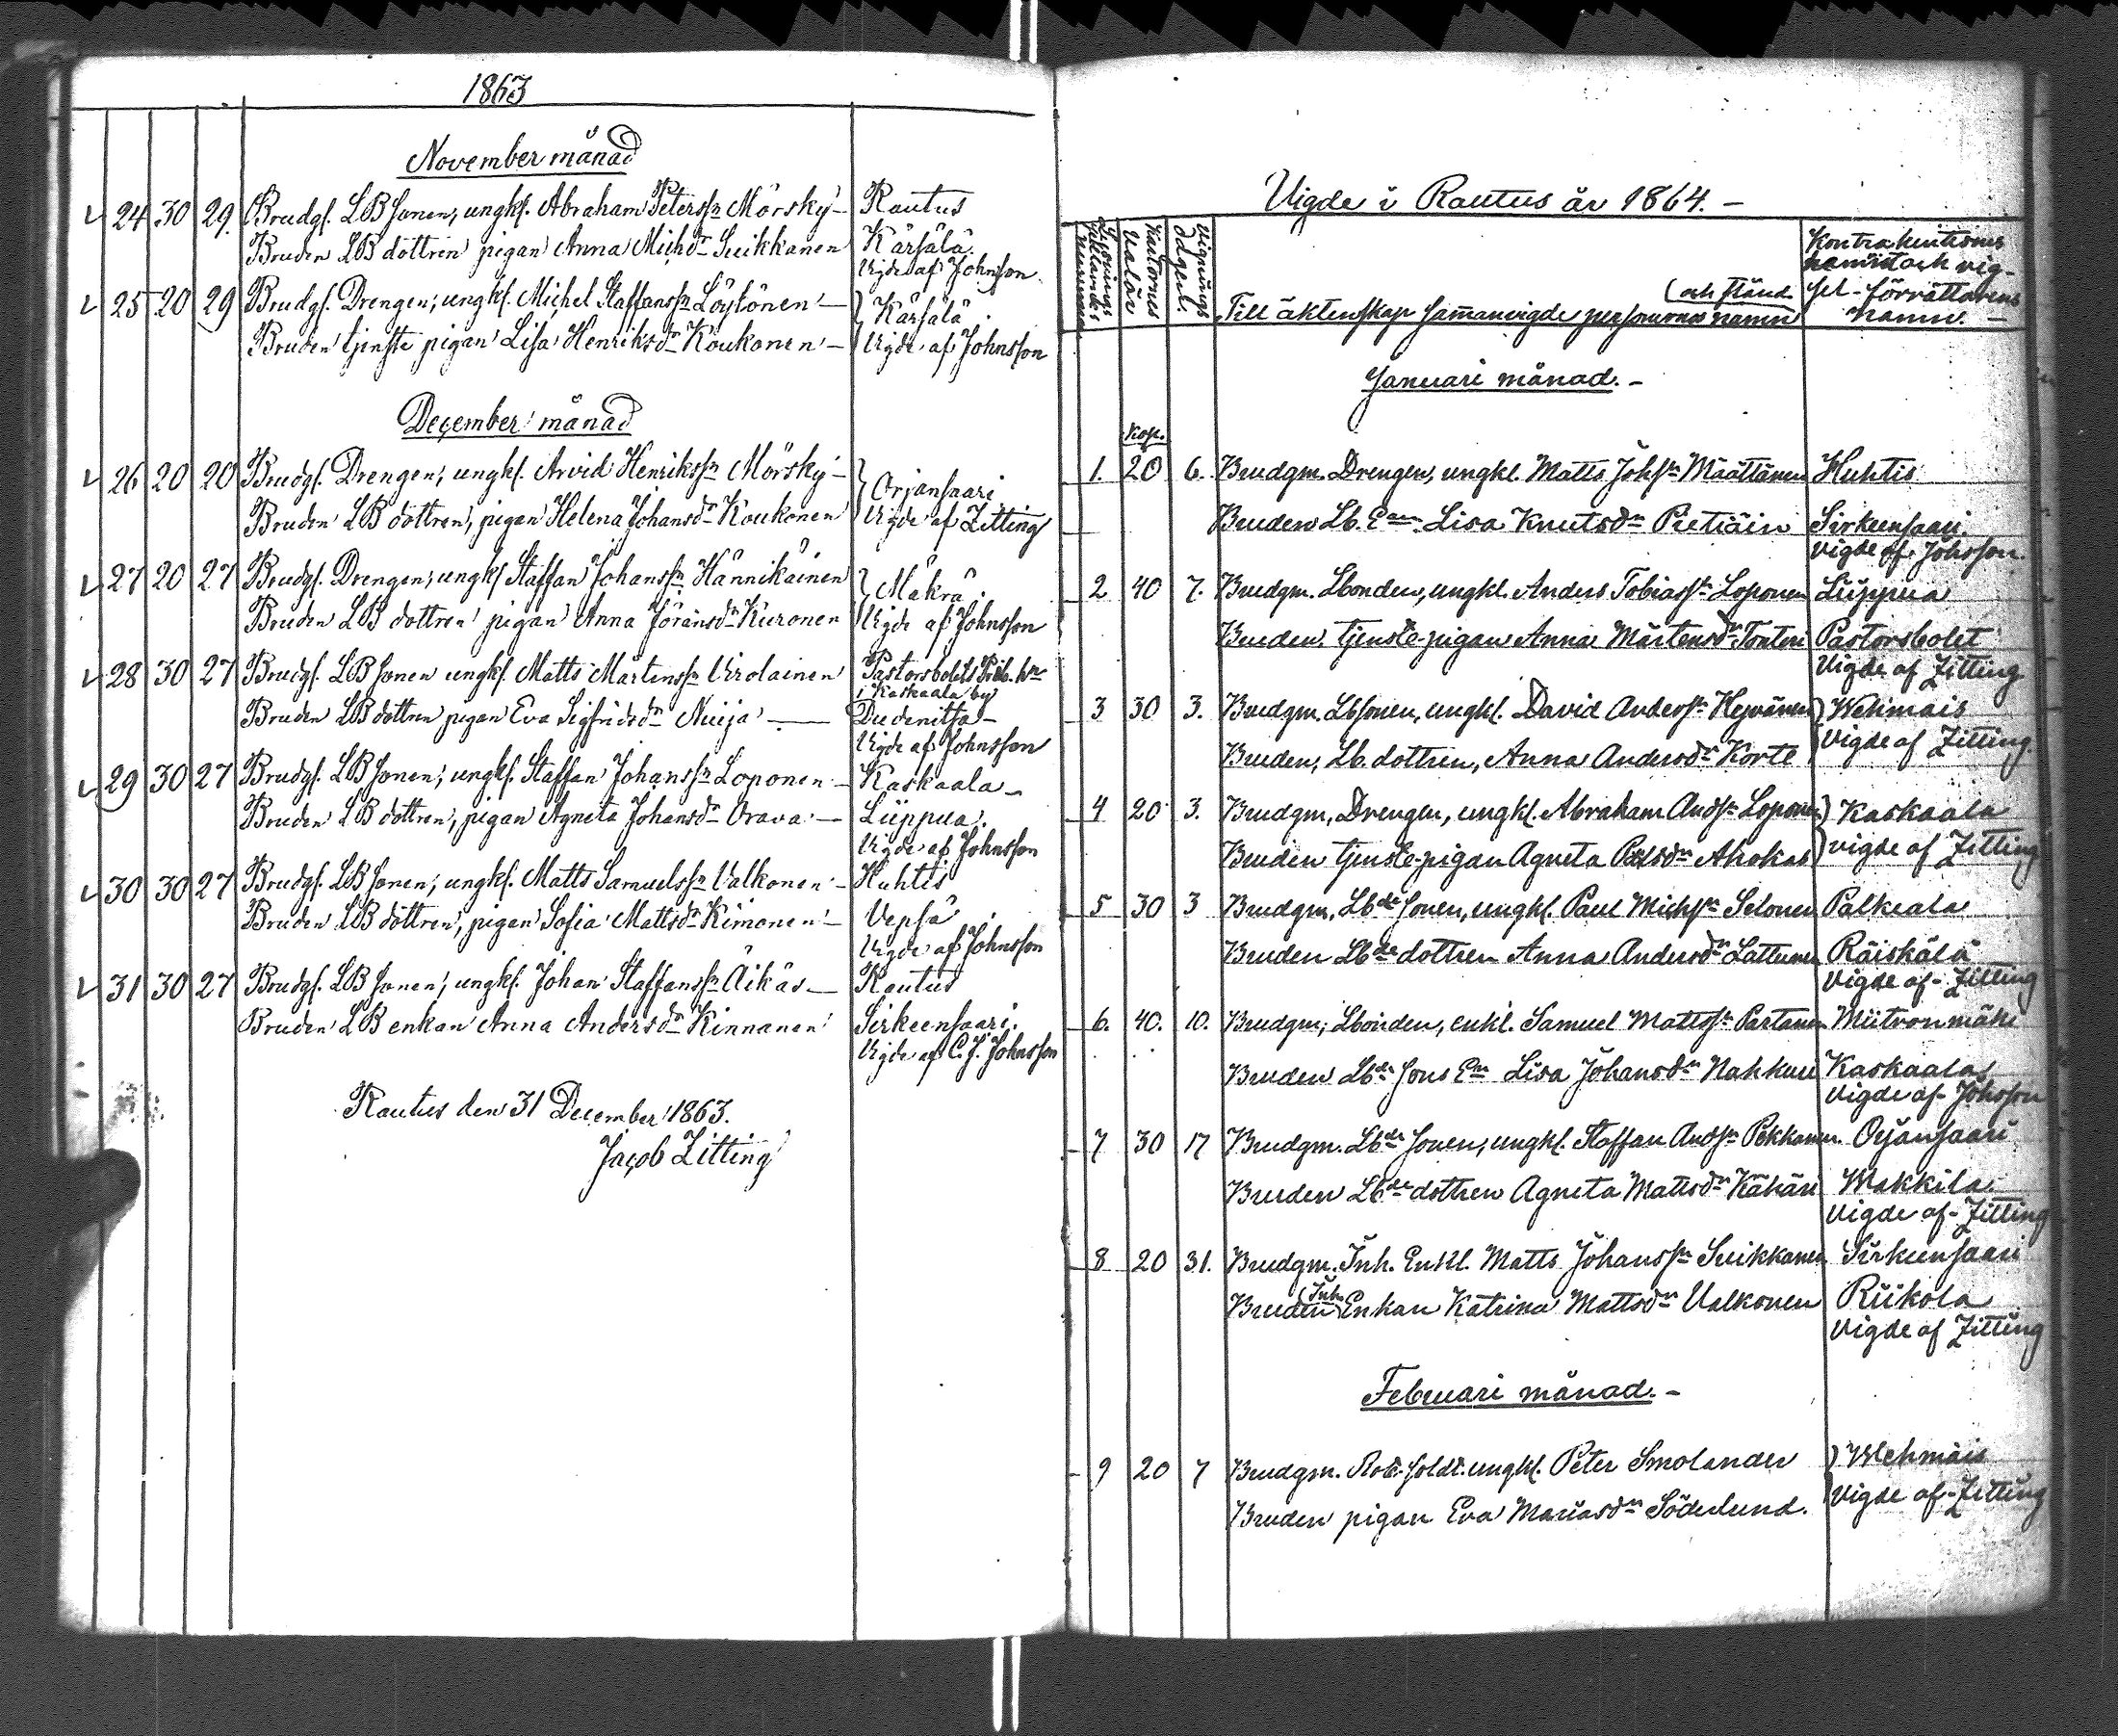 1863
November månad
24 30 29. Brudgf. LBsonen, ungkf. Abraham Peterssn Mörsky – Rautus
Bruden LB dottren pigan Anna Michdr Suikkanen Kärsälä.
Vigde af Johnsson
25 20 29 Brudgf. Drengen, ungkf. Michel Staffanssn Löylönen – Kärsälä
Bruden tjenste pigan Lisa Henriksdr Koukonen – Vigde af Johnsson
December månad
26 20 20 Brudgf. Drengen, ungkf. Arvid Henrikssn Mörsky – Orjansaari
Bruden LB dottren, pigan Helena Johansdr Koukonen Vigde af Zitting
27 20 27 Brudgf. Drengen, ungkf Staffan Johanssn Hännikäinen Mäkrä.
Bruden LB dottren pigan Anna Jöransdr Kuronen Vigde af Johnsson
28 30 27 Brudgf. LBsonen ungkf. Matts Mårtenssn Virolainen Pastorsbolets
i Kaskaala by
Bruden LB dottren pigan Eva Sigfridsdr Nuija – Dudenitsa –
Vigde af Johnsson
29 30 27 Brudgf. LBsonen, ungkf. Staffan Johanssn Loponen – Kaskaala –
Bruden LB dottren, pigan Agneta Johansdr Orava – Liippua.
Vigde af Johnsson
30 30 27 Brudgf. LBsonen, ungkf. Matts Samuelssn Valkonen – Huhtis
Bruden LB dottren, pigan Sofia Mattsdr Kimonen – Vepsä
Vigde af Johnsson
31 30 27 Brudgf. LBsonen, ungkf. Johan Staffanssn Äikäs – Rautus
Bruden LB enkan Anna Andersdr Kinnanen Sirkeensaari.
Vigde af C. J. Johnsson
Rautus den 31 December 1863.
Jacob Zitting
Vigde i Rautus år 1864. –
Vignings dagen.
Kartornes Valör
Kontrahenternes
hemvist och vig-
sel-förrättarens
namn. –
(och stånd
Till äktenskap sam̄anvigde personernas namn
Januari månad. –
Kop.
1. 20 6. Brudgm. Drengen, ungkl. Matts Johsn Määttänen Huhtis
Bruden Lb. Ean Lisa Knutsdr Pietiäin Sirkeensaari.
Vigde af. Johsson.
2 40 7. Brudgm. Lbonden, ungkl. Anders Tobiassn Loponen Liippua
Bruden, tjenste-pigan Anna Mårtensdr Tonteri Pastorsbolet
Vigde af Zitting
3 30 3. Brudgm. Lbsonen, ungkl. David Anderssn Hyvönen Wehmais
Bruden, Lb. dottren, Anna Andersdr Korte Vigde af Zitting.
4 20 3. Brudgm, Drengen, ungkl. Abraham Andsn Loponen Kaskaala
Bruden tjenste-pigan Agneta Ahokas vigde af Zitting
5 30 3 Brudgm, Lbde sonen, ungkl. Paul Michsn Selonen Palkeala
Bruden Lbde dottren Anna Andersdr Lattunen Räiskälä
Vigde af- Zitting
6. 40. 10. Brudgm, Lbonden, enkl. Samuel Mattssn Partanen Miitronmäki
Bruden Lbde sons En Lisa Johansdr Nahkuri Kaskaala
Vigde af- Johsson
7 30 17 Brudgm. Lbde sonen, ungkl. Staffan Andsn Pekkanen Orjansaari
Bruden Lbde dottren Agneta Mattsdr Kähäri Makkila.
Vigde af- Zitting
8 20 31. Brudgm. Inh. Enkl. Matts Johanssn Suikkanen Sirkeensaari
(Inh.
Bruden Enkan Katrina Mattsdr Valkonen Riikola
Vigde af Zitting
Februari månad. –
9 20 7 Brudgm. Rote soldt. ungkl. Peter Smolander Wehmais
Bruden pigan Eva Mariasdr Söderlund. Vigde af- Zitting